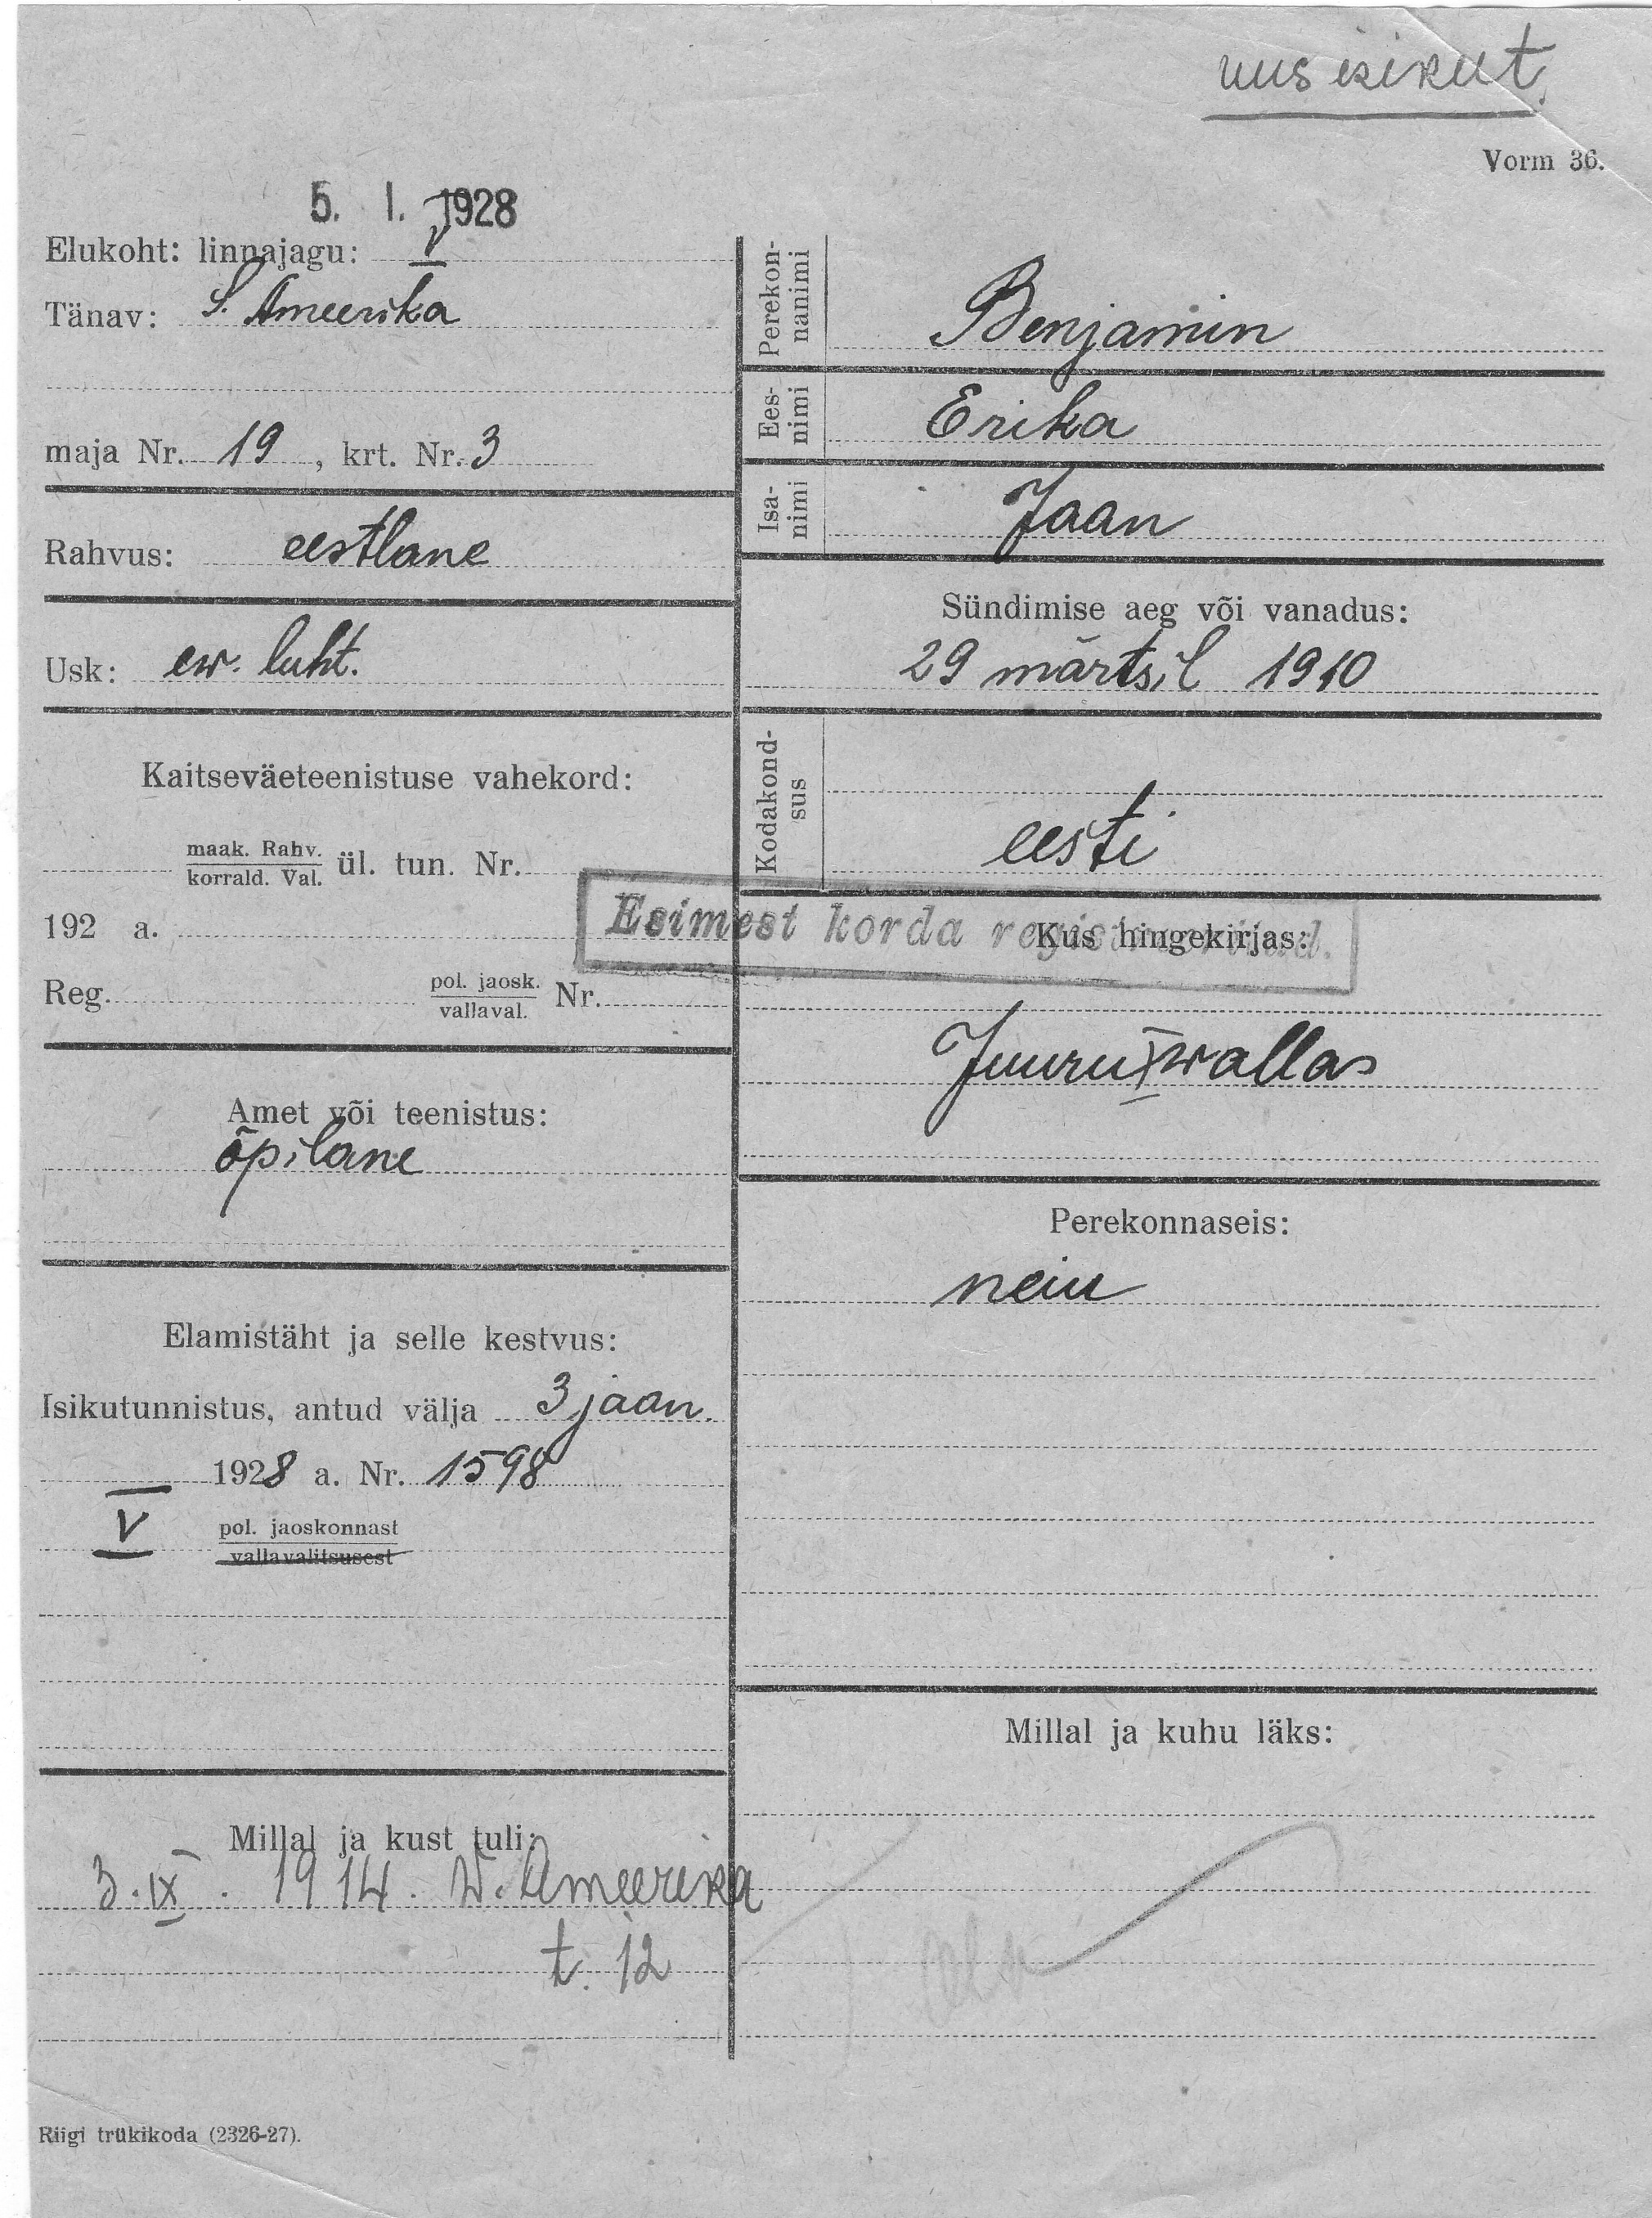 uus isikut.
Vorm 36.
5. I. 1928
Elukoht: linnajagu: V
Tänav: S. Ameerika
maja Nr. 19, krt. Nr. 3
Rahvus: eestlane
Usk: ew. luht.
Kaitseväeteenistuse vahekord:
maak. Rahv.
korrald. Val. ül. tun. Nr.
192 a.
Reg. pol. jaosk.
vallaval. Nr.
Amet või teenistus:
õpilane
Elamistäht ja selle kestvus:
Isikutunnistus, antud välja 3 jaan.
1928 a. Nr. 1598
V pol. jaoskonnast
vallavalitsusest
Millal ja kust tuli:
3. IX. 1914. W. Ameerika
t. 12
Riigi trükikoda (2326-27).
Perekon-
nanimi
Benjamin
Ees-
nimi
Erika
Isa-
nimi
Jaan
Sündimise aeg või vanadus:
29 märtsil 1910
Kodakond-
sus
eesti
Esimest korda registreeritud.
Kus hingekirjas:
Juuru wallas
Perekonnaseis:
neiu
Millal ja kuhu läks: